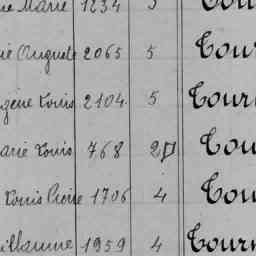 ne Marie 1234 5 Tou
ie Auguste 2065 5 Tour
gène Louis 2104 5 Tourn
arie Louis 768 2 Tou
Louis Pierre 1706 4 Tou
uillaume 1959 4 Tourn